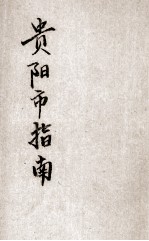 贵阳市指南